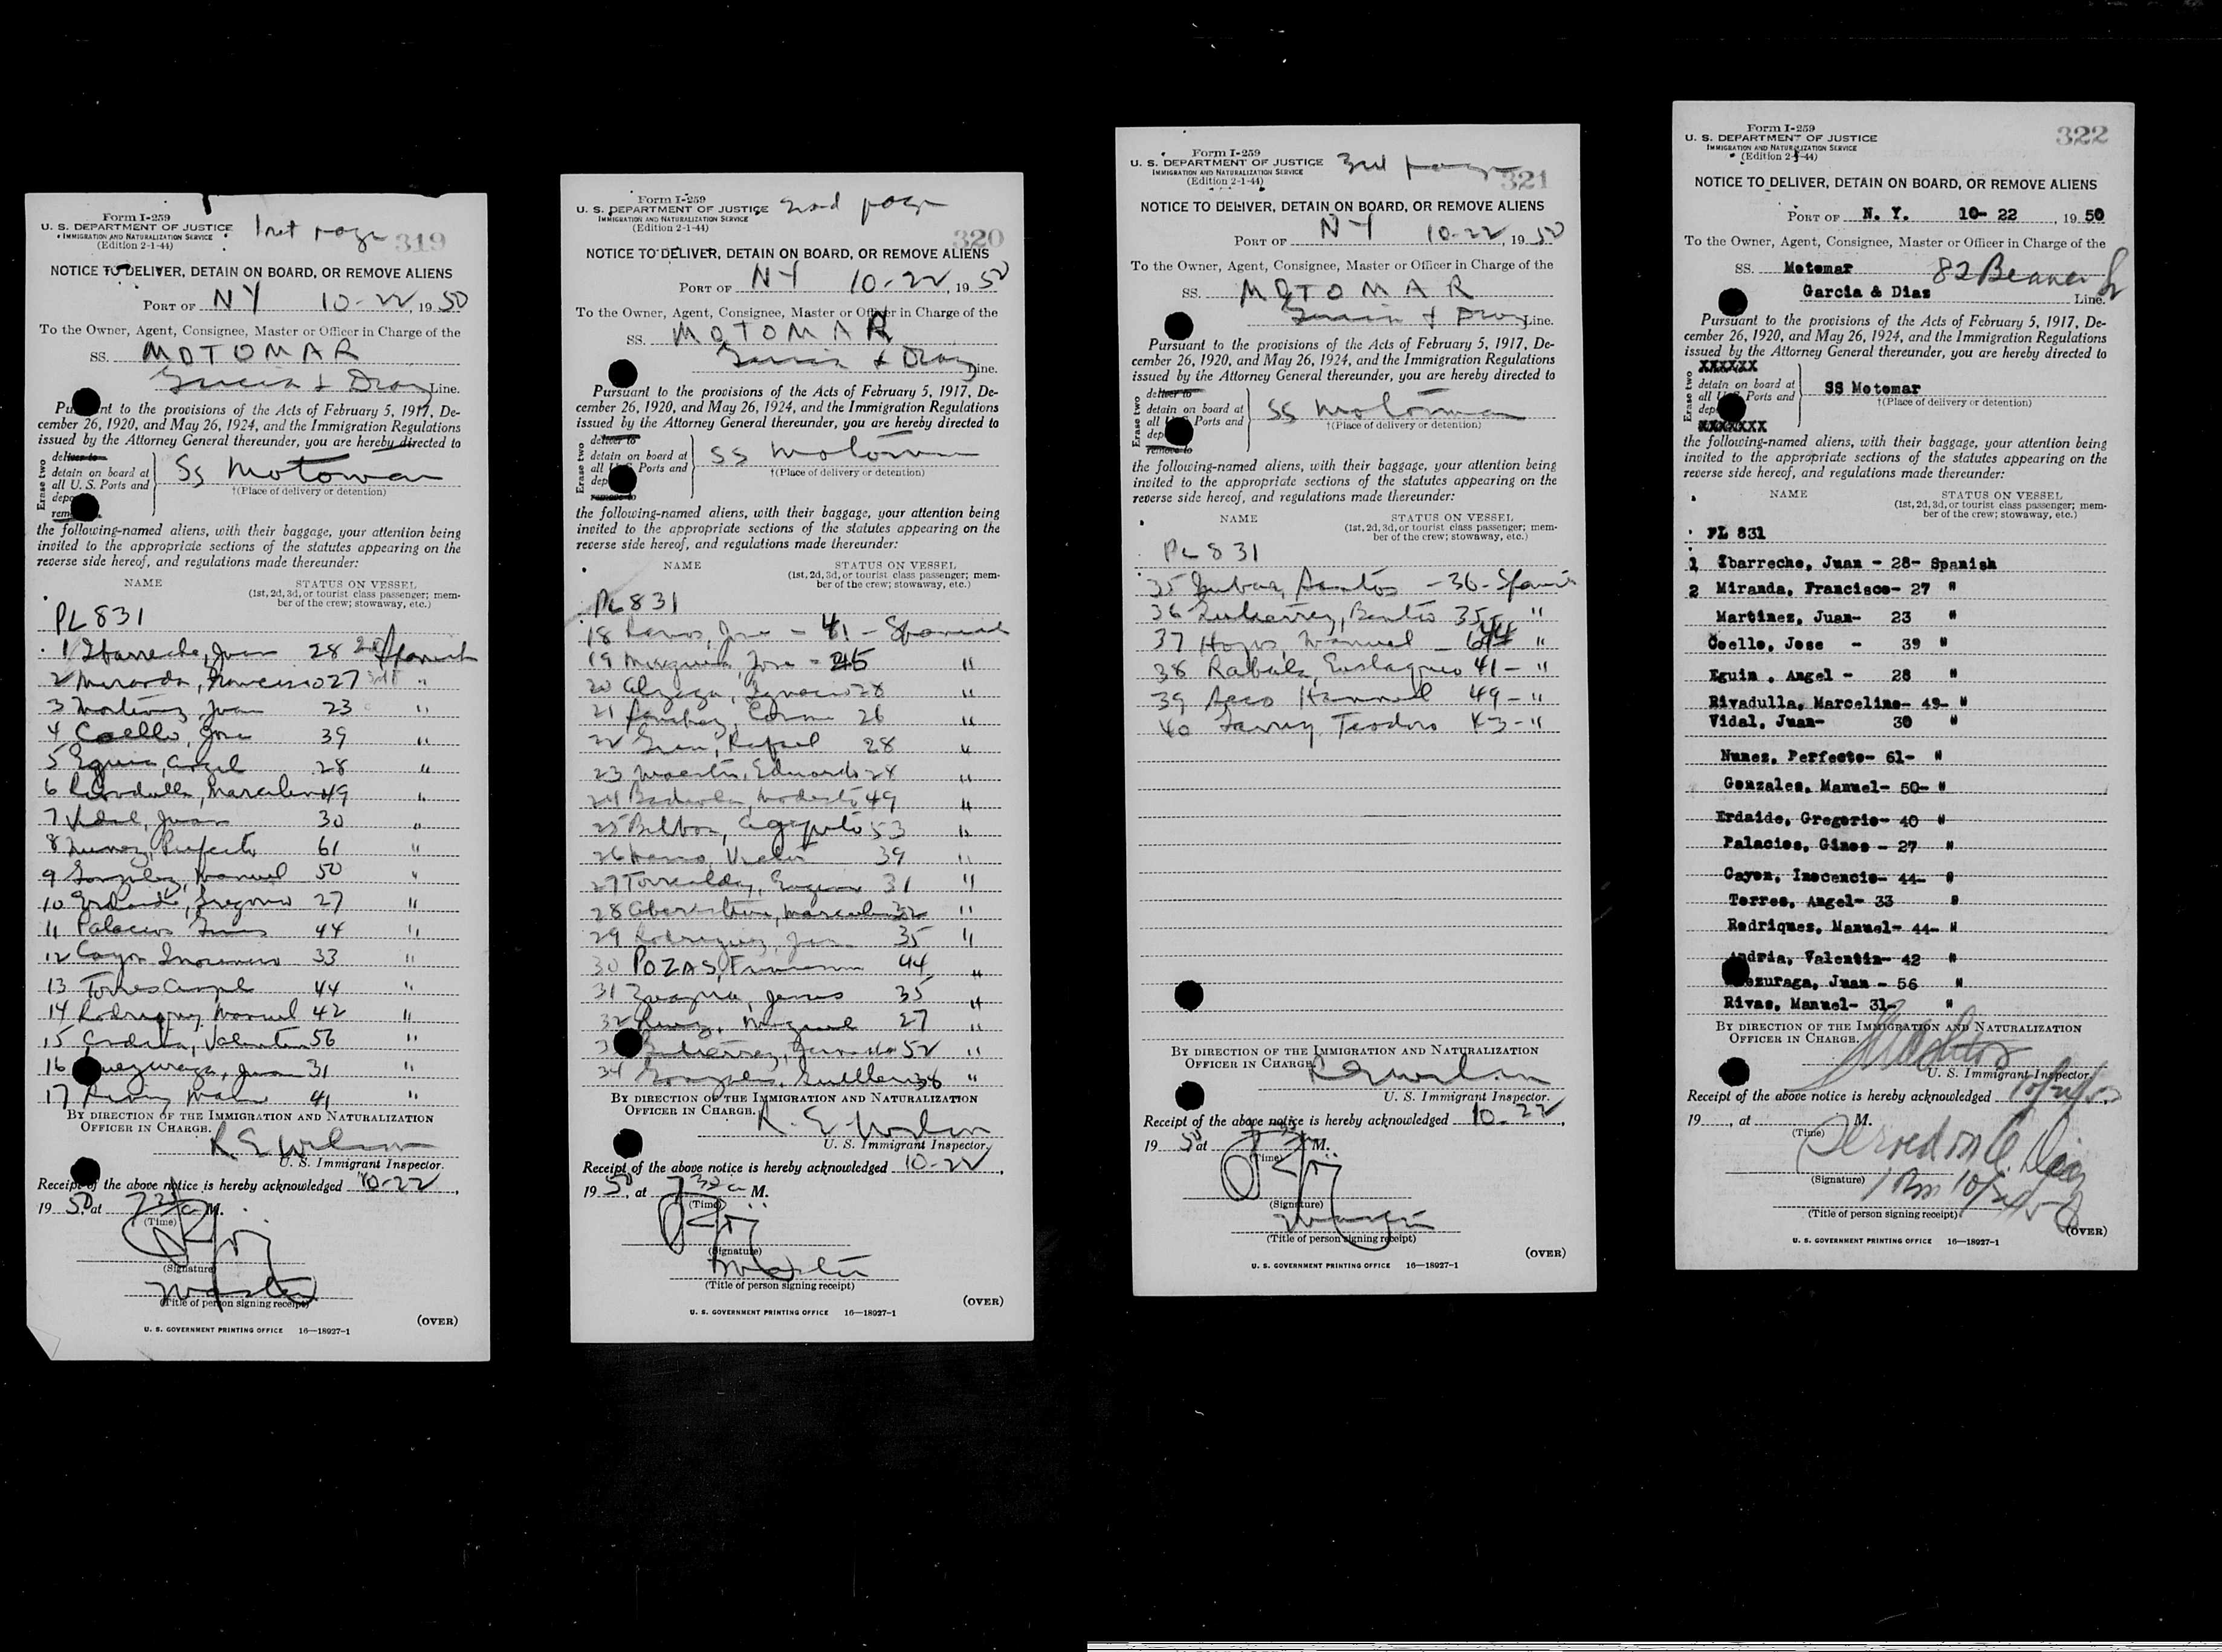 Form I-259
U. S. DEPARTMENT OF JUSTICE
IMMIGRATION AND NATURALIZATION SERVICE
(Edition 2-1-44)
1st page 319
NOTICE TO DELIVER, DETAIN ON BOARD, OR REMOVE ALIENS
PORT OF NY 10-22, 1950
To the Owner, Agent, Consignee, Master or Officer in Charge of the
SS. MOTOMAR
Garcia & Diaz Line.
Pursuant to the provisions of the Acts of February 5, 1917, De-
cember 26, 1920, and May 26, 1924, and the Immigration Regulations
issued by the Attorney General thereunder, you are hereby directed to
Erase two
deliver to
detain on board at
all U. S. Ports and
SS Motomar
†(Place of delivery or detention)
the following-named aliens, with their baggage, your attention being
invited to the appropriate sections of the statutes appearing on the
reverse side hereof, and regulations made thereunder:
NAME STATUS ON VESSEL
(1st, 2d, 3d, or tourist class passenger; mem-
ber of the crew; stowaway, etc.)
PL 831
1 Ibarreche, Juan 28 Spanish
2 Miranda, Francisco 27 "
3 Martinez, Juan 23 "
4 Coello, Jose 39 "
5 Eguia, Angel 28 "
6 Rivadulla, Marcelino 49 "
7 Vidal, Juan 30 "
8 Nunez, Perfecto 61 "
9 Gonzalez, Manuel 50 "
10 Gregorio 27 "
11 Palacios Gines 44 "
12 Cayon Inocencio 33 "
13 Torres Angel 44 "
14 Rodriguez, Manuel 42 "
15 Andria, Valentin 56 "
16 Juan 31 "
17 Rivas 41 "
BY DIRECTION OF THE IMMIGRATION AND NATURALIZATION
OFFICER IN CHARGE.
R E Wilson
U. S. Immigrant Inspector.
Receipt of the above notice is hereby acknowledged 10-22,
1950, at 7 a M.
(Time)
(Signature)
Master
(Title of person signing receipt)
(OVER)
U. S. GOVERNMENT PRINTING OFFICE 16—18927-1
Form I-259
U. S. DEPARTMENT OF JUSTICE
IMMIGRATION AND NATURALIZATION SERVICE
(Edition 2-1-44)
2nd page 320
NOTICE TO DELIVER, DETAIN ON BOARD, OR REMOVE ALIENS
PORT OF NY 10-22, 1950
To the Owner, Agent, Consignee, Master or Officer in Charge of the
SS. MOTOMAR
Garcia & Diaz Line.
Pursuant to the provisions of the Acts of February 5, 1917, De-
cember 26, 1920, and May 26, 1924, and the Immigration Regulations
issued by the Attorney General thereunder, you are hereby directed to
Erase two
deliver to
detain on board at
all U. S. Ports and
remove to
SS Motomar
†(Place of delivery or detention)
the following-named aliens, with their baggage, your attention being
invited to the appropriate sections of the statutes appearing on the
reverse side hereof, and regulations made thereunder:
NAME STATUS ON VESSEL
(1st, 2d, 3d, or tourist class passenger; mem-
ber of the crew; stowaway, etc.)
PL 831
18 Ramos, Jose - 41 - Spanish
19 Jose - 45 "
20 Ignacio 28 "
21 26 "
22 Rafael 28 "
23 Eduardo 28 "
24 Modesto 49 "
25 Bilbao, Agapito 53 "
26 Victor 39 "
27 Torrealday, Eugenio 31 "
28 Marcelino 32 "
29 Rodriguez, Juan 35 "
30 POZAS, Francisco 44 "
31 35 "
32 Ruiz, Miguel 27 "
33 Gutierrez, 52 "
34 Gonzales, 38 "
BY DIRECTION OF THE IMMIGRATION AND NATURALIZATION
OFFICER IN CHARGE.
R. E. Wilson
U. S. Immigrant Inspector.
Receipt of the above notice is hereby acknowledged 10-22,
1950, at 7 a M.
(Time)
(Signature)
Master
(Title of person signing receipt)
(OVER)
U. S. GOVERNMENT PRINTING OFFICE 16—18927-1
Form I-259
U. S. DEPARTMENT OF JUSTICE
IMMIGRATION AND NATURALIZATION SERVICE
(Edition 2-1-44)
3rd page 321
NOTICE TO DELIVER, DETAIN ON BOARD, OR REMOVE ALIENS
PORT OF NY 10-22, 1950
To the Owner, Agent, Consignee, Master or Officer in Charge of the
SS. MOTOMAR
Garcia & Diaz Line.
Pursuant to the provisions of the Acts of February 5, 1917, De-
cember 26, 1920, and May 26, 1924, and the Immigration Regulations
issued by the Attorney General thereunder, you are hereby directed to
Erase two
deliver to
detain on board at
all U. S. Ports and
remove to
SS Motomar
†(Place of delivery or detention)
the following-named aliens, with their baggage, your attention being
invited to the appropriate sections of the statutes appearing on the
reverse side hereof, and regulations made thereunder:
NAME STATUS ON VESSEL
(1st, 2d, 3d, or tourist class passenger; mem-
ber of the crew; stowaway, etc.)
PL 831
35 Santos - 36 - Spanish
36 Gutierrez, Benito 35 "
37 Hoyos, Manuel "
38 Eustaquio 41 - "
39 49 - "
40 Teodoro 43 - "
BY DIRECTION OF THE IMMIGRATION AND NATURALIZATION
OFFICER IN CHARGE.
R E Wilson
U. S. Immigrant Inspector.
Receipt of the above notice is hereby acknowledged 10-22,
1950 at 7 M.
(Time)
(Signature)
Master
(Title of person signing receipt)
(OVER)
U. S. GOVERNMENT PRINTING OFFICE 16—18927-1
Form I-259
U. S. DEPARTMENT OF JUSTICE
IMMIGRATION AND NATURALIZATION SERVICE
(Edition 2-1-44)
322
NOTICE TO DELIVER, DETAIN ON BOARD, OR REMOVE ALIENS
PORT OF N. Y. 10- 22, 1950
To the Owner, Agent, Consignee, Master or Officer in Charge of the
SS. Motomar 82 Beaver St
Garcia & Dias Line.
Pursuant to the provisions of the Acts of February 5, 1917, De-
cember 26, 1920, and May 26, 1924, and the Immigration Regulations
issued by the Attorney General thereunder, you are hereby directed to
Erase two
XXXXXX
detain on board at
all U. S. Ports and
XXXXXXX
SS Motomar
†(Place of delivery or detention)
the following-named aliens, with their baggage, your attention being
invited to the appropriate sections of the statutes appearing on the
reverse side hereof, and regulations made thereunder:
NAME STATUS ON VESSEL
(1st, 2d, 3d, or tourist class passenger; mem-
ber of the crew; stowaway, etc.)
PL 831
1 Ibarreche, Juan - 28- Spanish
2 Miranda, Francisco- 27 "
Martinez, Juan- 23 "
Coello, Jose - 39 "
Eguia , Angel - 28 "
Rivadulla, Marcelino- 49- "
Vidal, Juan- 30 "
Nunez, Perfecto- 61- "
Gonzales, Manuel- 50- "
Erdaide, Gregorio- 40 "
Palacios, Gines - 27 "
Cayon, Inocencio- 44- "
Torres, Angel- 33 "
Rodriques, Manuel- 44- "
Andria, Valentin- 42 "
ezuraga, Juan - 56 "
Rivas, Manuel- 31- "
BY DIRECTION OF THE IMMIGRATION AND NATURALIZATION
OFFICER IN CHARGE.
U. S. Immigrant Inspector.
Receipt of the above notice is hereby acknowledged
19 , at M.
(Time)
Served on
(Signature)
(Title of person signing receipt)
(OVER)
U. S. GOVERNMENT PRINTING OFFICE 16—18927-1